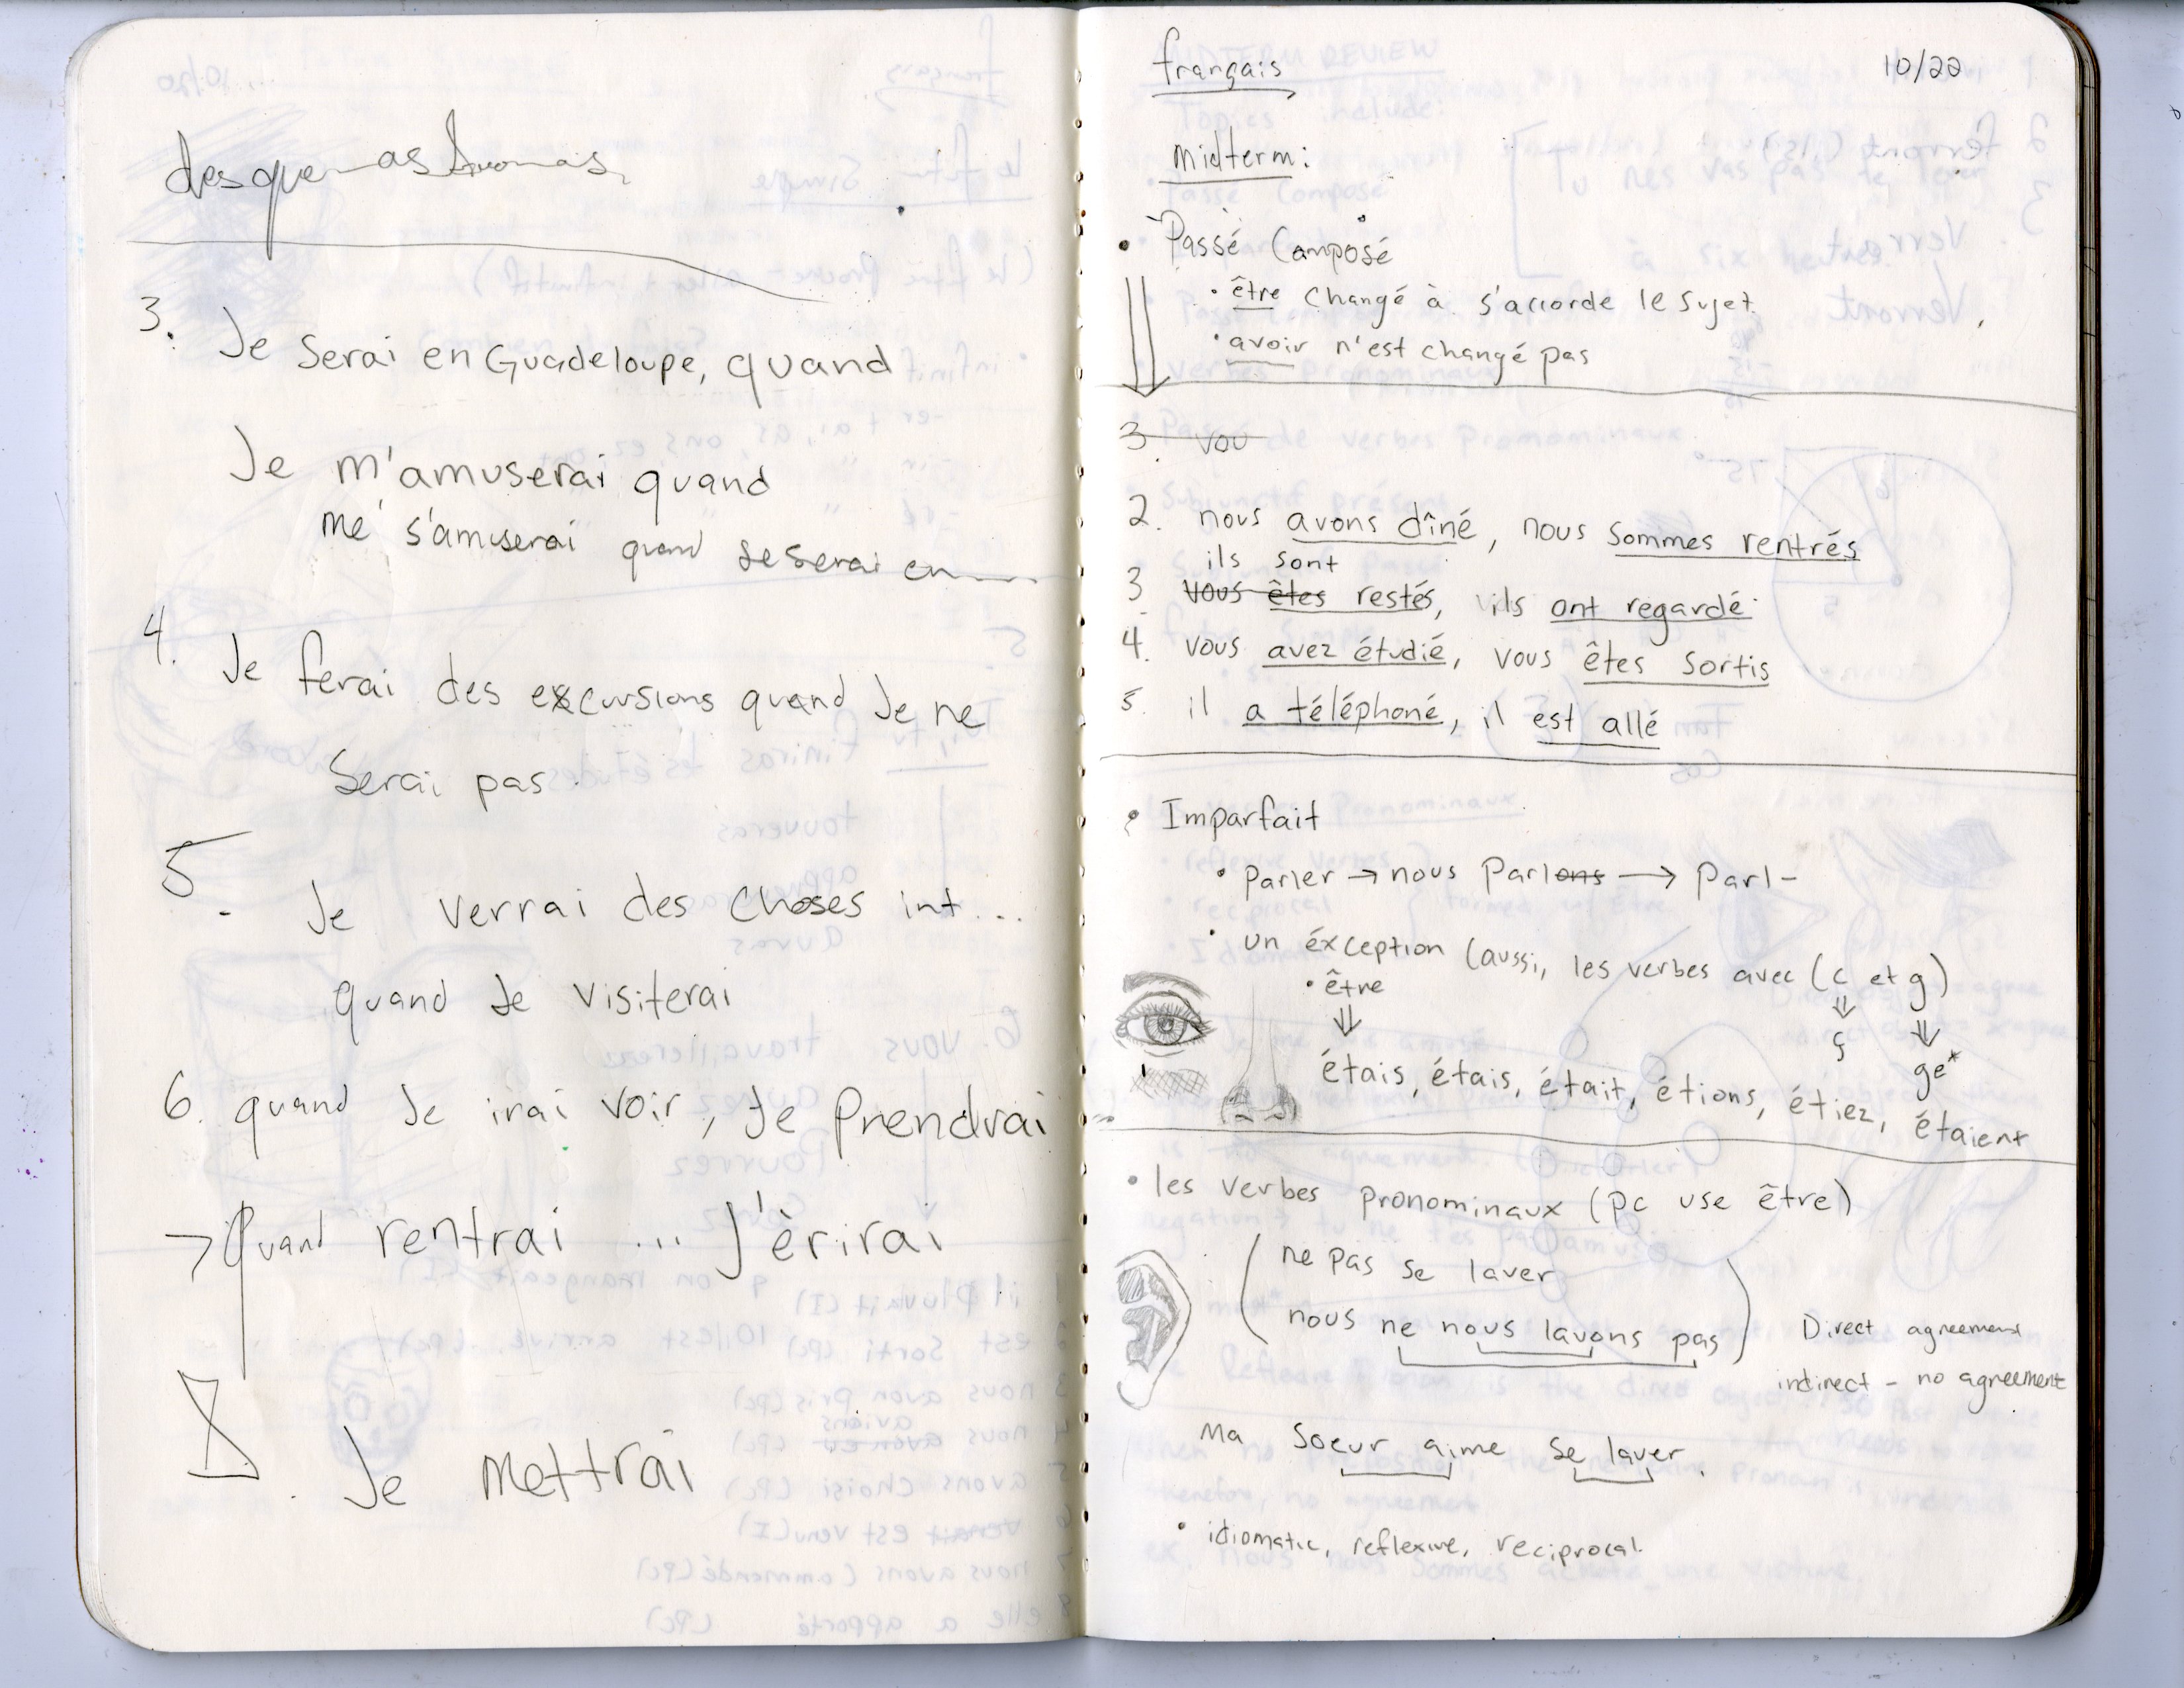 3. Je serai en Guadeloupe, quand
Je m'amuserai quand
me s'amuserai quand je serai en
4. Je ferai des excursions quand Je ne
serai pas.
5. Je verrai des choses int...
quand Je visiterai
6. quand Je irai voir, Je prendrai
→ Quand rentrai ... J'èrirai
8. Je mettrai
français
10/22
midterm:
• Passé Composé
• être changé à s'accorde le sujet.
• avoir n'est changé pas
3. vou
2. nous avons dîné, nous sommes rentrés
ils sont
3 vous êtes restés, ils ont regardé
4. vous avez étudié, vous êtes sortis
5. il a téléphoné, il est allé
• Imparfait
• parler → nous parlons → parl-
• un éxception (aussi, les verbes avec (c et g)
• être
⇓ ⇓ ⇓
ç ge*
étais, étais, était, étions, étiez, étaient
• les verbes pronominaux (pc use être)
(ne pas se laver
nous ne nous lavons pas)
Direct agreement
indirect - no agreement
Ma soeur aime se laver.
• idiomatic, reflexive, reciprocal.